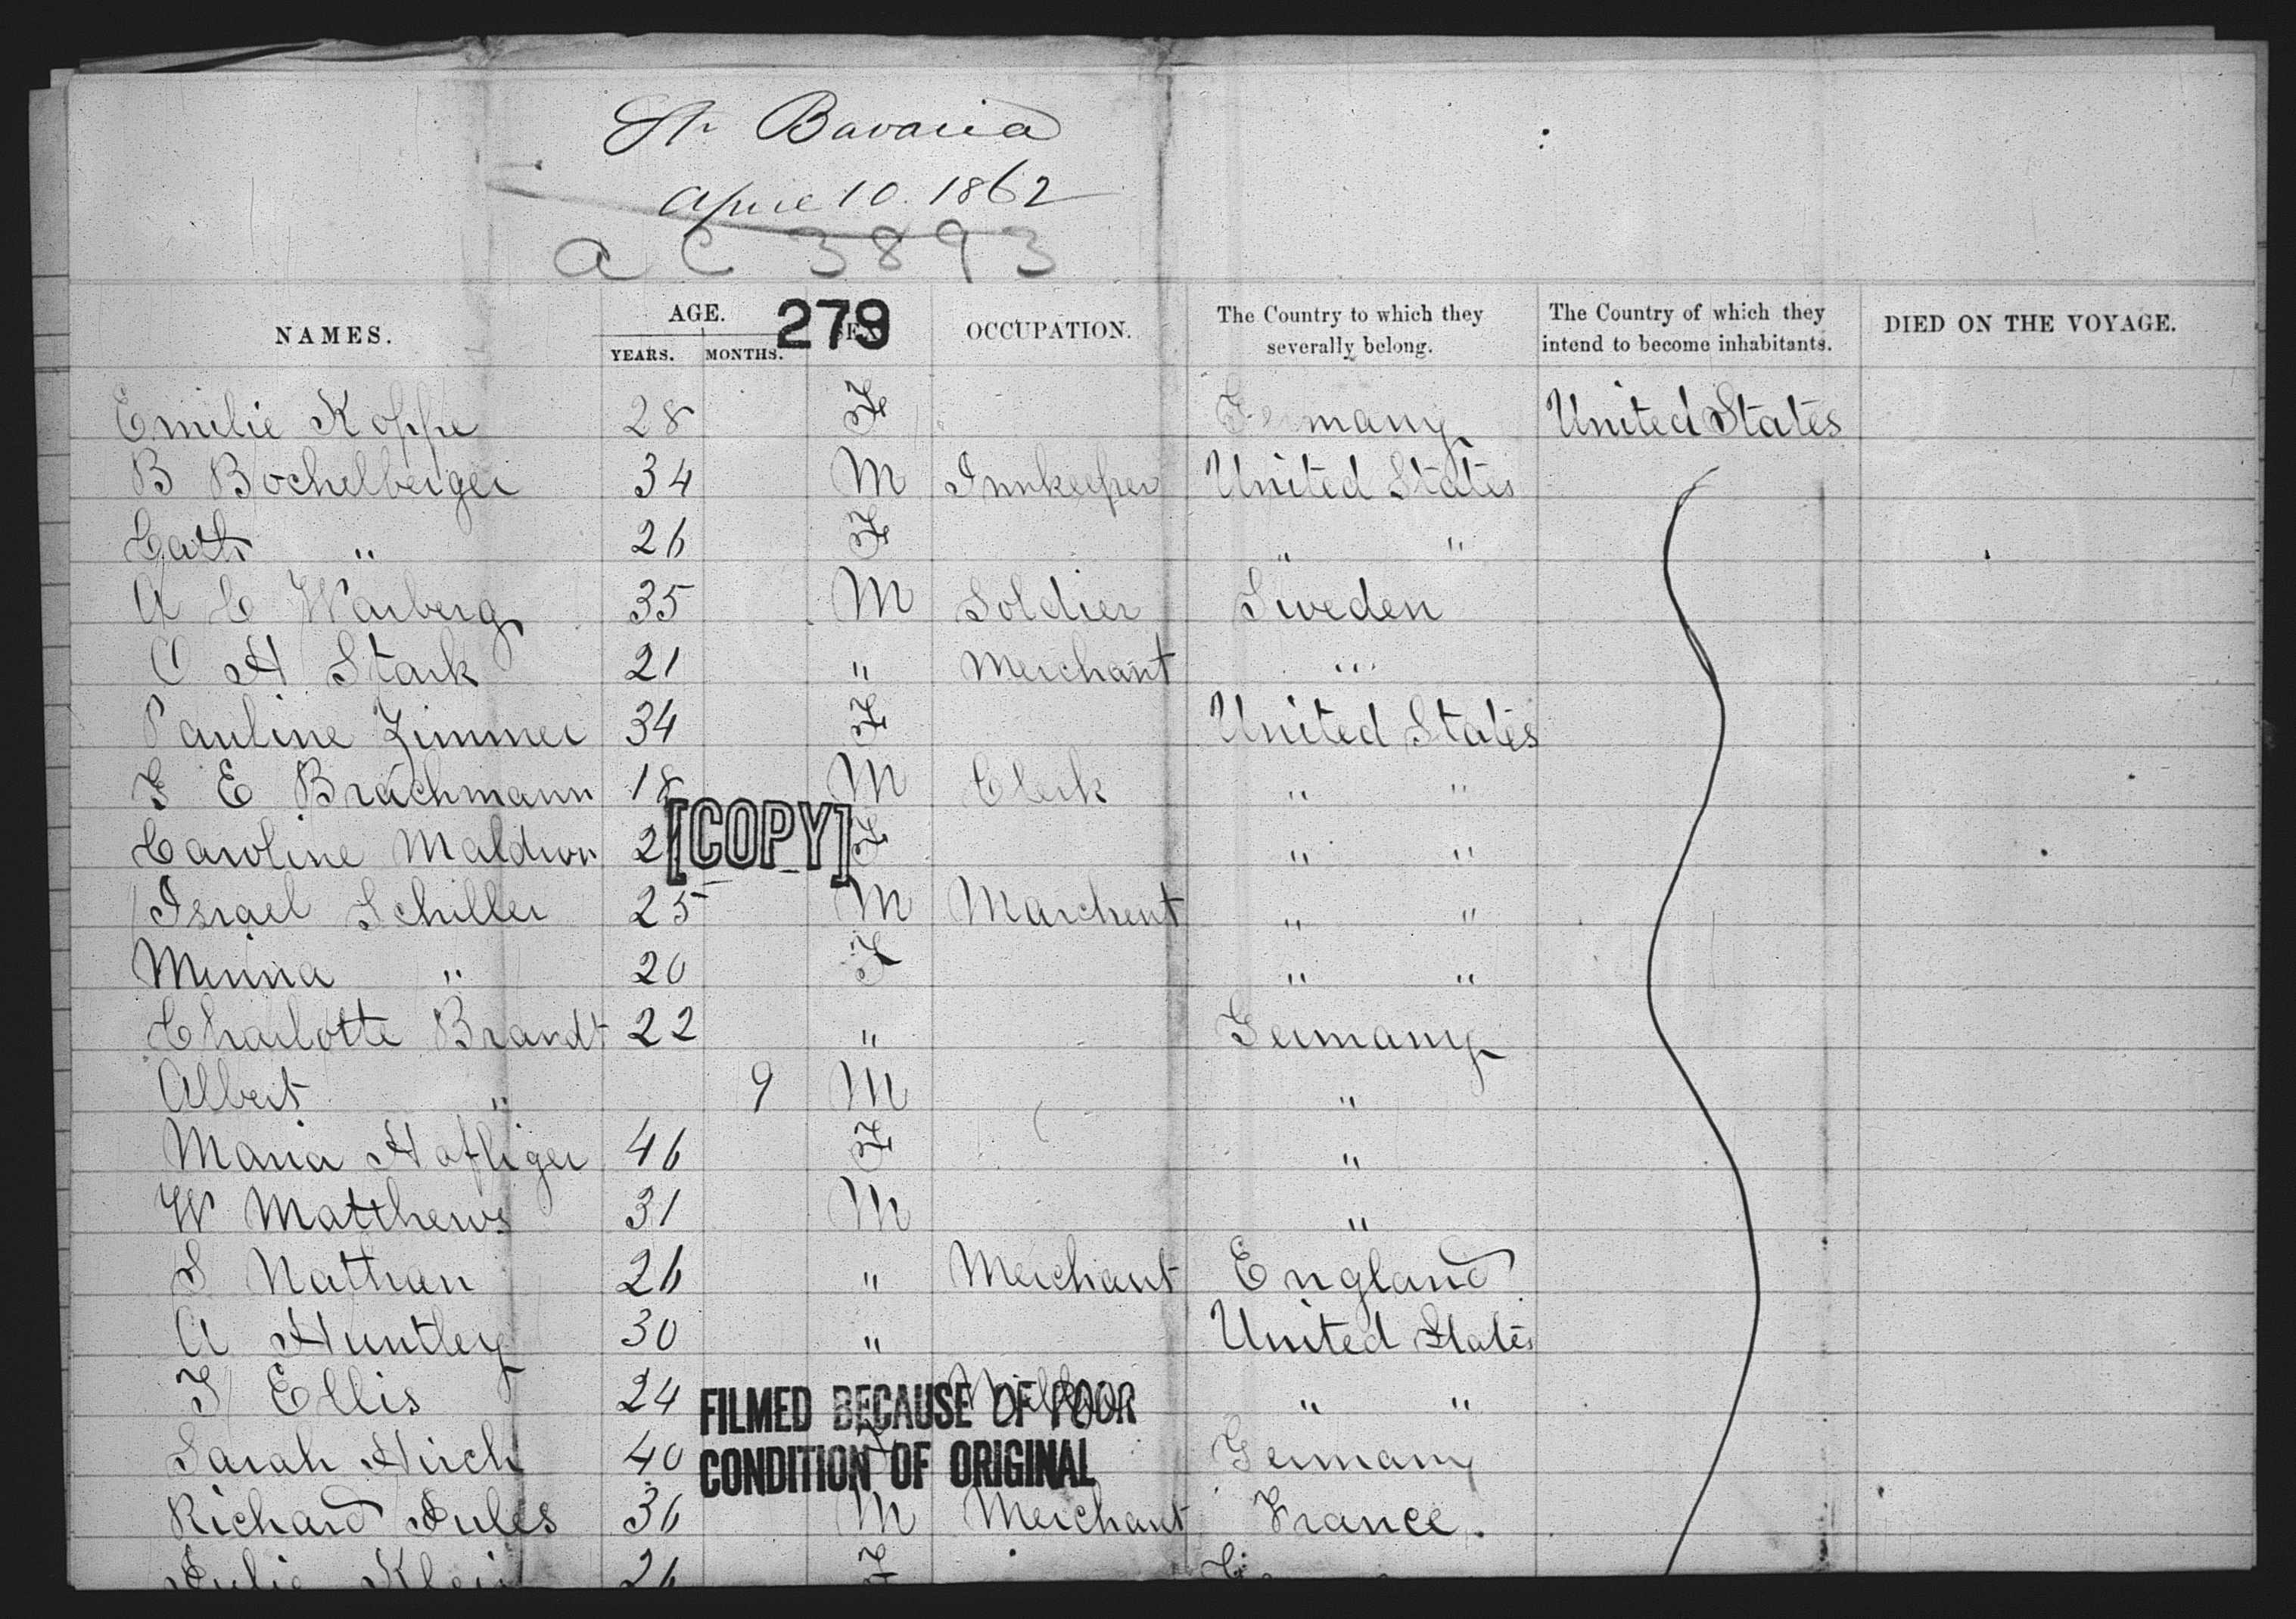 Str Bavaria
April 10. 1862
a C 3893
279
NAMES. AGE. YEARS. MONTHS. SEX OCCUPATION. The Country to which they severally belong. The Country of which they intend to become inhabitants. DIED ON THE VOYAGE.
Emilie Koppe 28 F Germany United States
B Bochelberger 34 M Innkeeper United States
Cath " 26 F " "
A C Warberg 35 M Soldier Sweden
O H Stark 21 " Merchant "
Pauline Zimmer 34 F United States
F E Brachmann 18 M Clerk " "
Caroline 2 F " "
[COPY]
Israel Schiller 25 M Marchent " "
Minna " 20 F " "
Charlotte Brandt 22 " Germany
Albert " 9 M "
Maria Hofliger 46 F "
W Matthews 31 M "
S Nathan 26 " Merchant England
A Huntley 30 " United States
Ellis 24 " "
Sarah Hirch 40 F Germany
FILMED BECAUSE OF POOR
CONDITION OF ORIGINAL
Richard Jules 36 M Merchant France.
Julie Klein 26 F